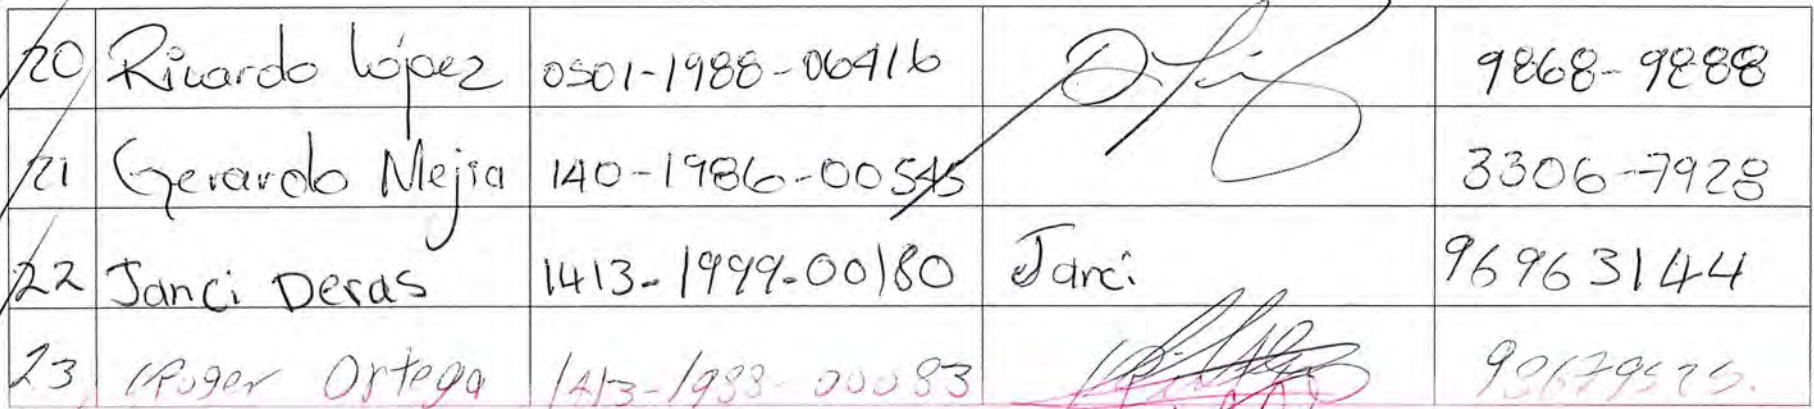 20 Ricardo López 0501-1988-06416 9868-9888
21 Gerardo Mejia 140-1986-00545 3306-7928
22 Janci Deras 1413-1999-00180 Janci 96963144
23 Roger Ortega 1413-1988-00083